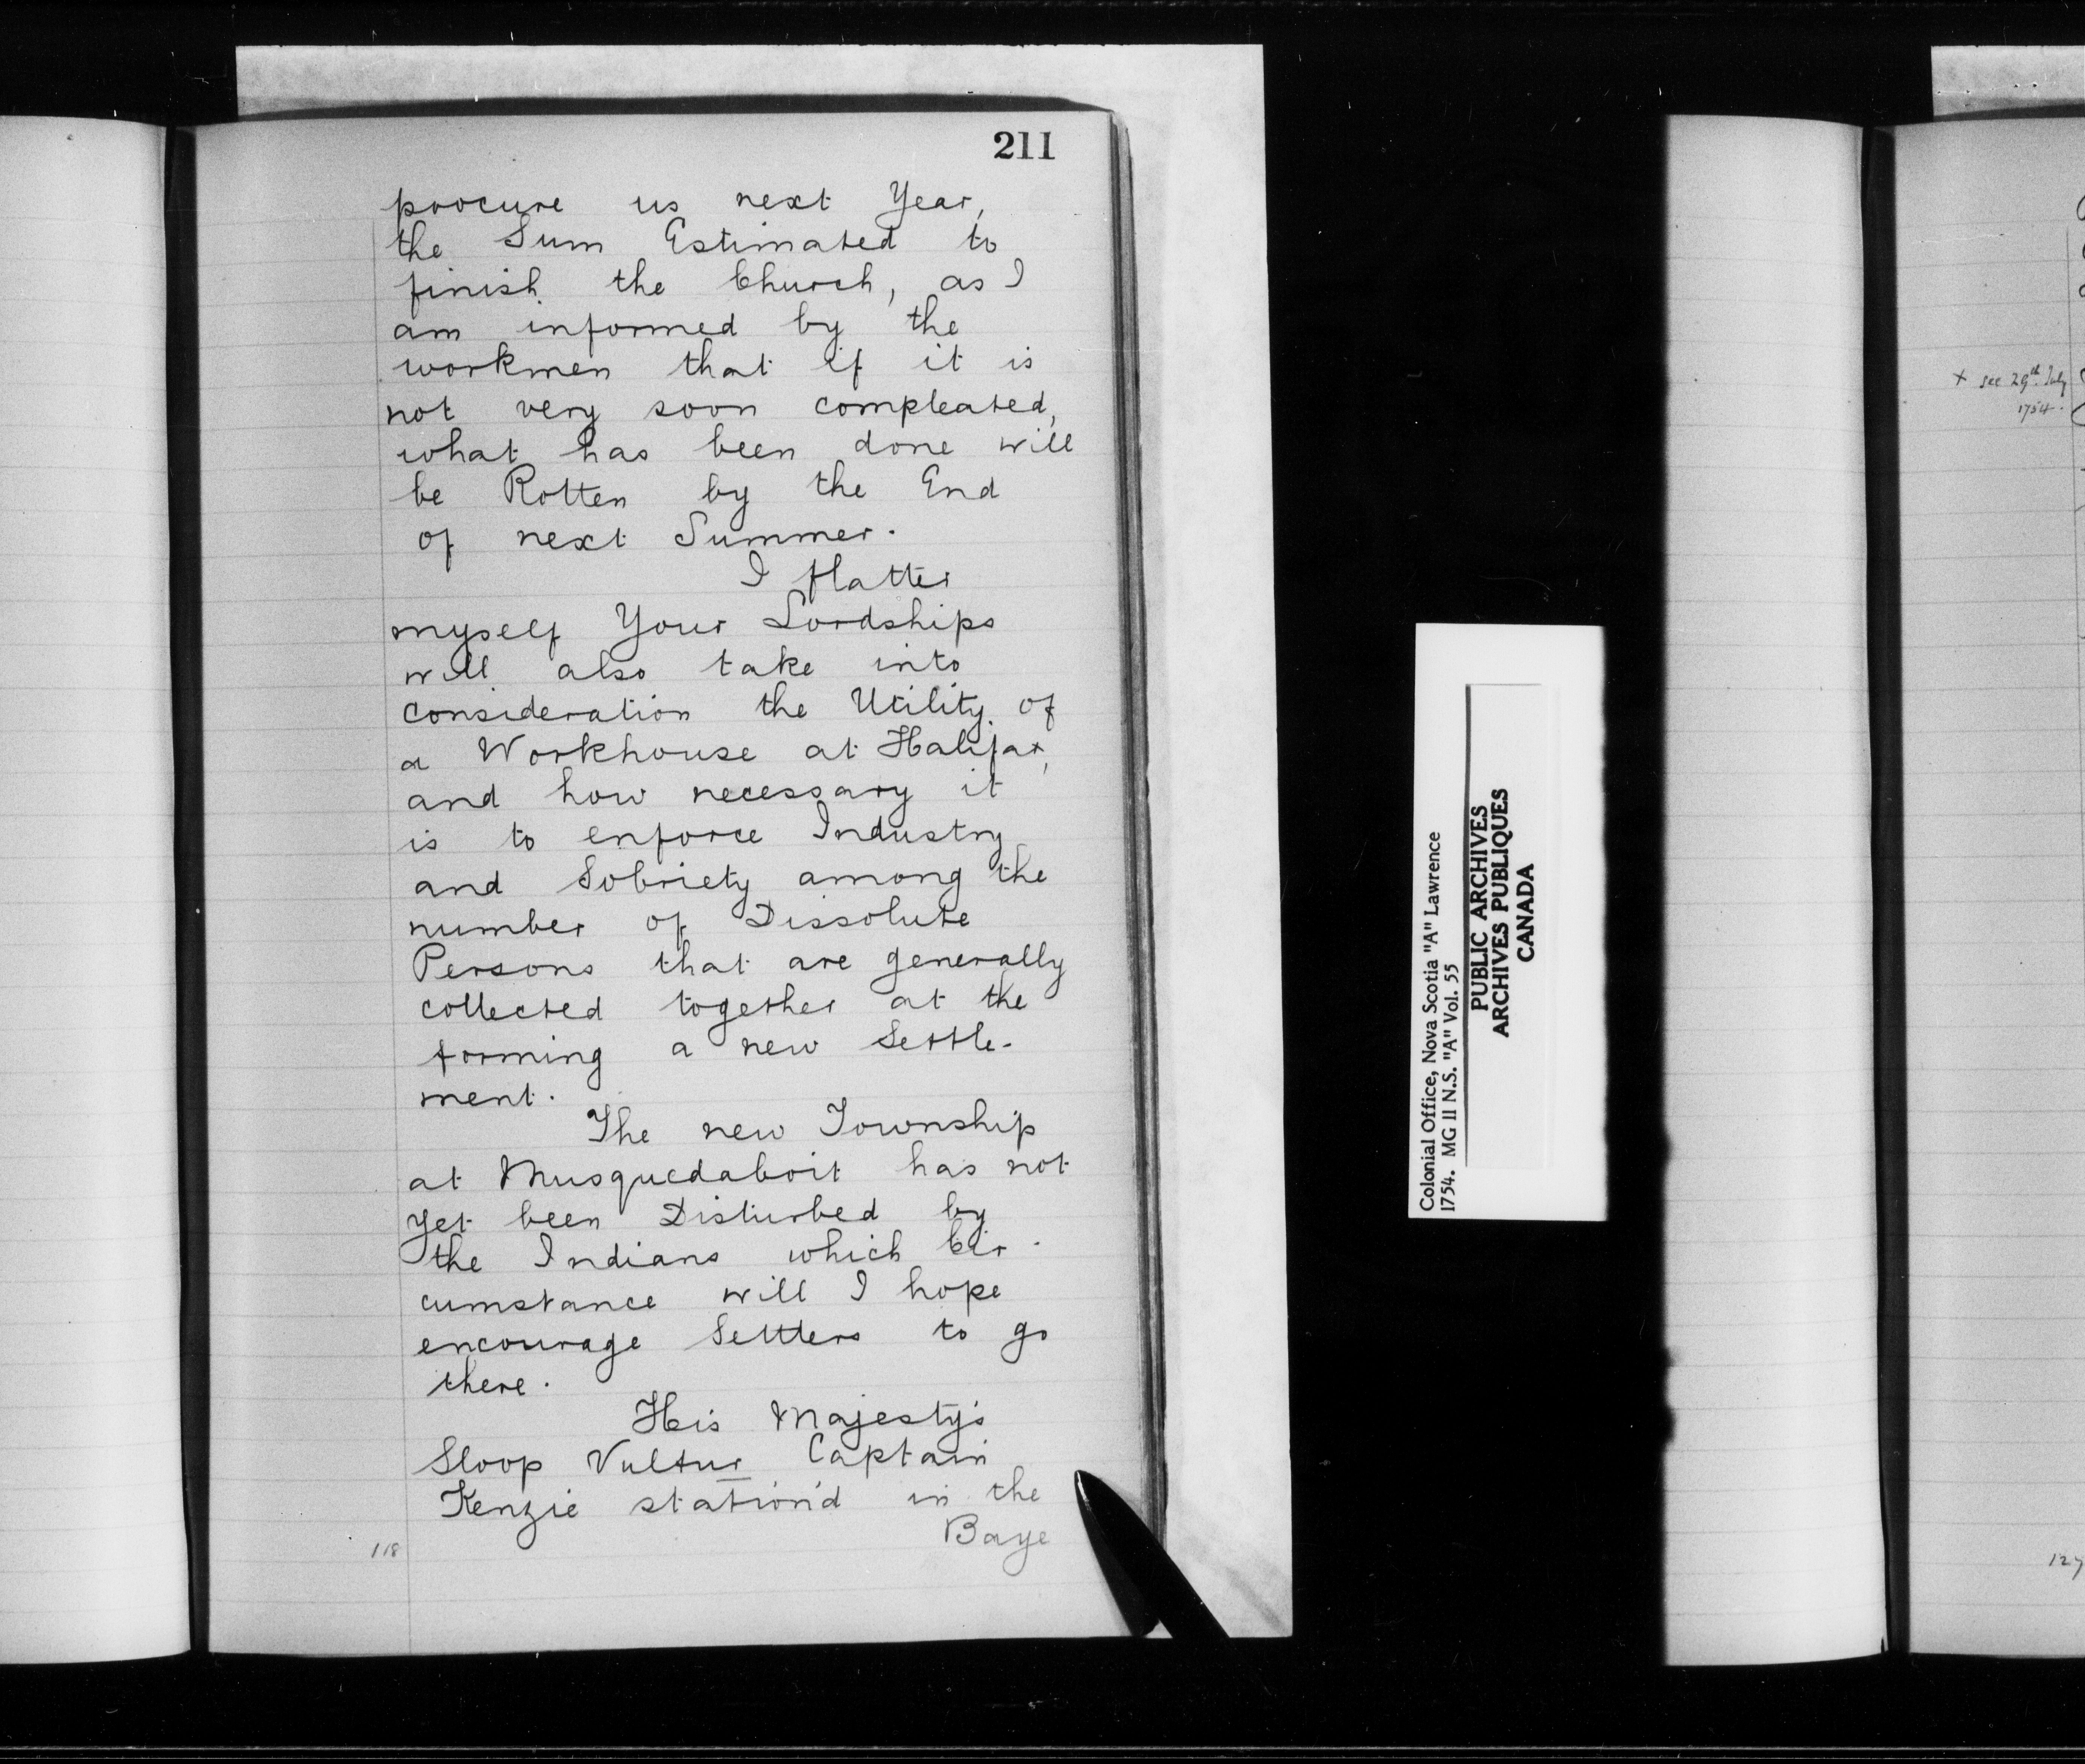 211
procure us next Year,
the Sum Estimated to
finish the Church, as I
am informed by the
workmen that if it is
not very soon compleated,
what has been done will
be Rotten by the End
of next Summer.
I flatter
myself Your Lordships
will also take into
consideration the Utility of
a Workhouse at Halifax,
and how necessary it
is to enforce Industry
and Sobriety among the
number of Dissolute
Persons that are generally
collected together at the
forming a new Settle-
ment.
The new Township
at Musquedaboit has not
yet been Disturbed by
the Indians which Cir-
cumstance will I hope
encourage Settlers to go
there.
His Majesty's
Sloop Vultur Captain
Kenzie station'd in the
Baye
118
Colonial Office, Nova Scotia "A" Lawrence
1754. MG II N.S. "A" Vol. 55
PUBLIC ARCHIVES
ARCHIVES PUBLIQUES
CANADA
+ see 29th July
1754.
127